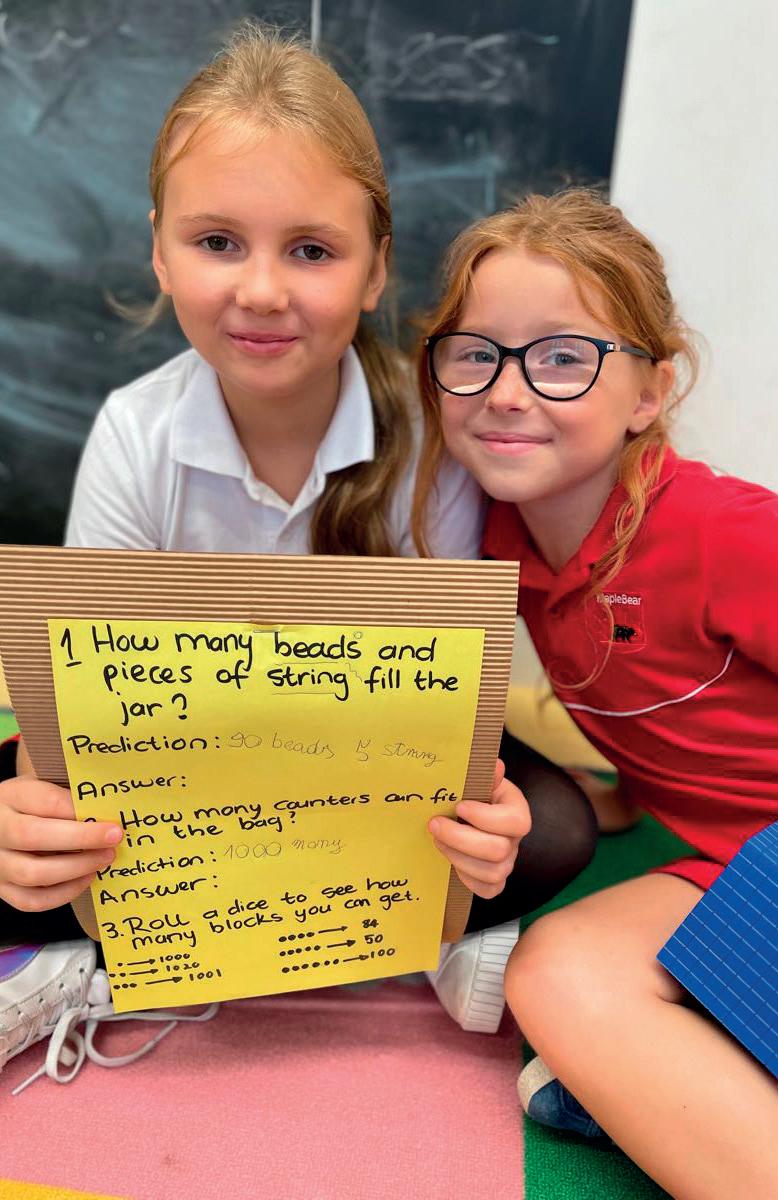 1 How many beads and
pieces of string fill the
jar?
Prediction: 90 beads 5 string
Answer:
How many counters can fit
in the bag?
Prediction: 1000 many
Answer:
3. Roll a dice to see how
many blocks you can get.
• → 1000
•• → 1020
••• → 1001
•••• → 84
••••• → 50
•••••• → 100
apleBear